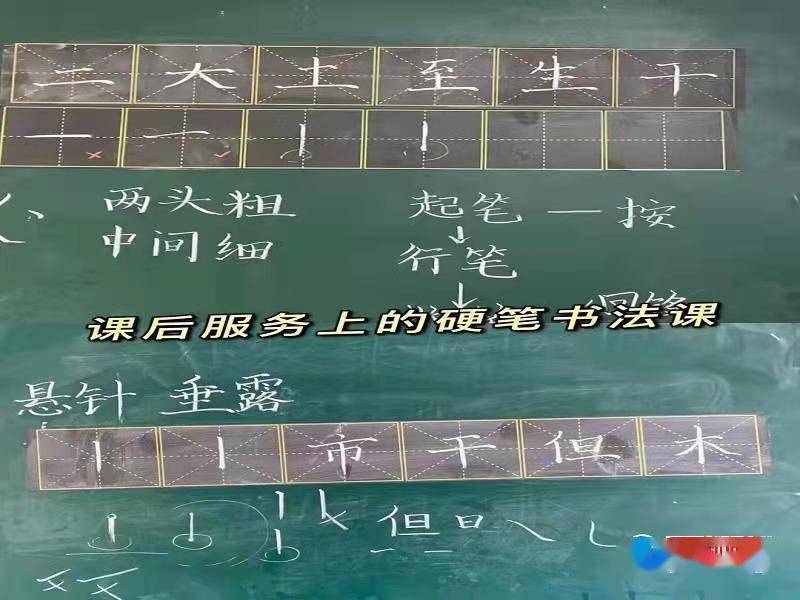 二大上至生干
一一丨丨
两头粗
中间细
起笔一按
↓
行笔
↓
课后服务上的硬笔书法课
悬针 垂露
丨丨市干但木
但日